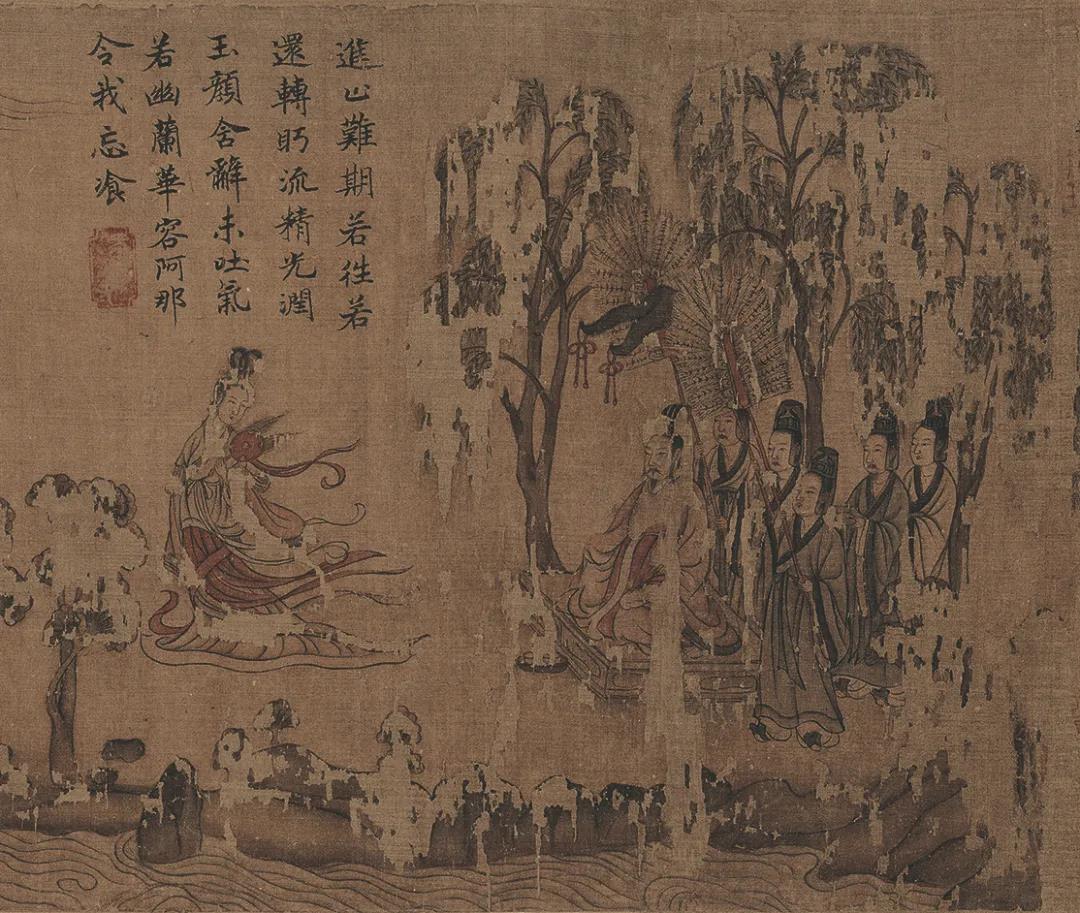 進止難期若往若
還轉眄流精光潤
玉顏含辭未吐氣
若幽蘭華容阿那
令我忘湌